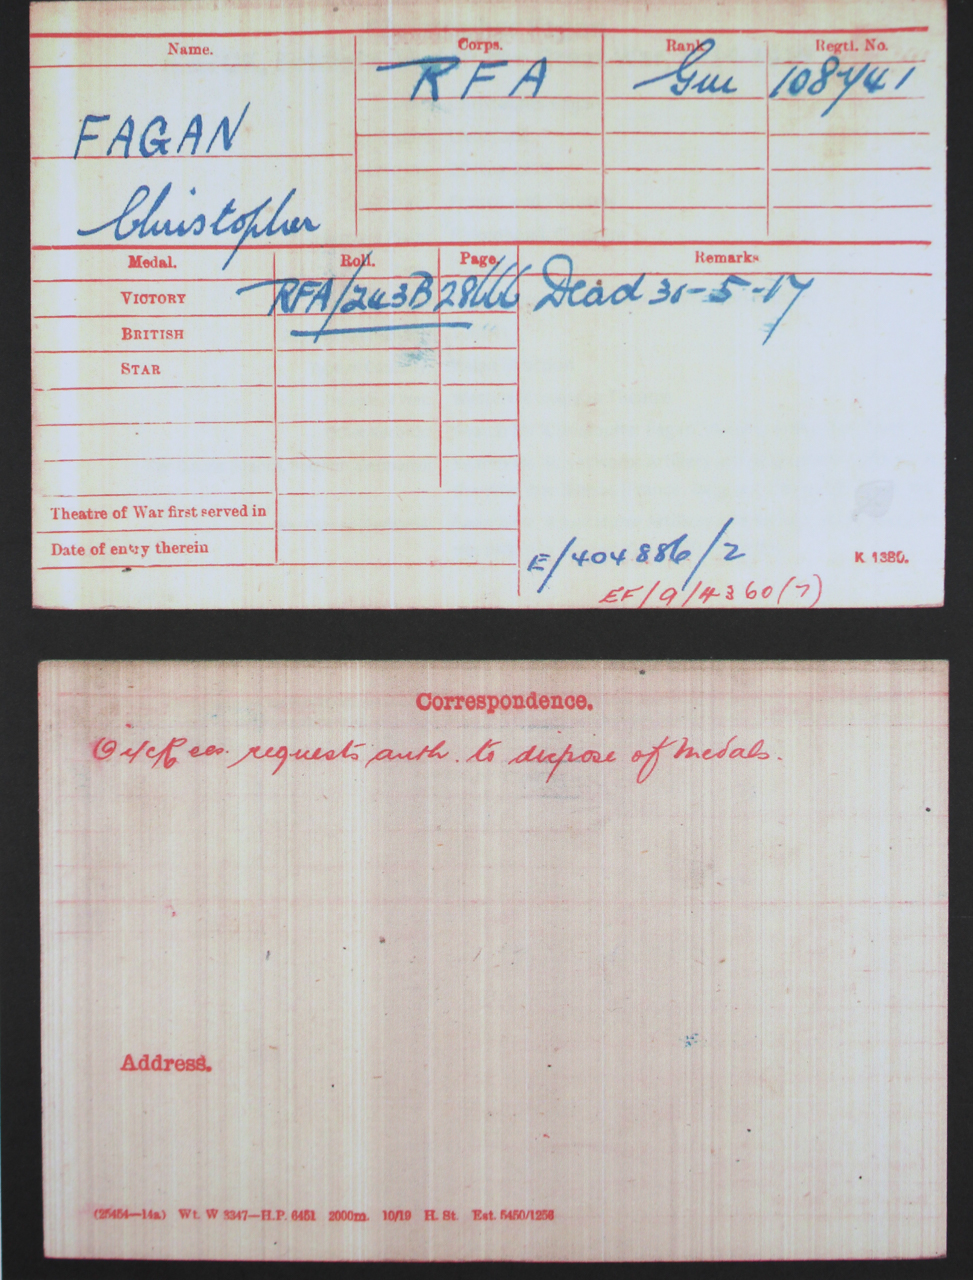 Name. Corps. Rank Regtl. No.
RFA Gnr 108741
FAGAN
Christopher
Medal. Roll. Page. Remarks
VICTORY RFA/243B Dead 31-5-17
BRITISH
STAR
Theatre of War first served in
Date of entry therein
E/404886/2
K 1380.
EF/9/4360(7)
Correspondence.
O i/c Rec. requests auth. to dispose of medals.
Address.
(25454—14a) Wt. W 3347—H.P. 6451 2000m. 10/19 H. St. Est. 5450/1256